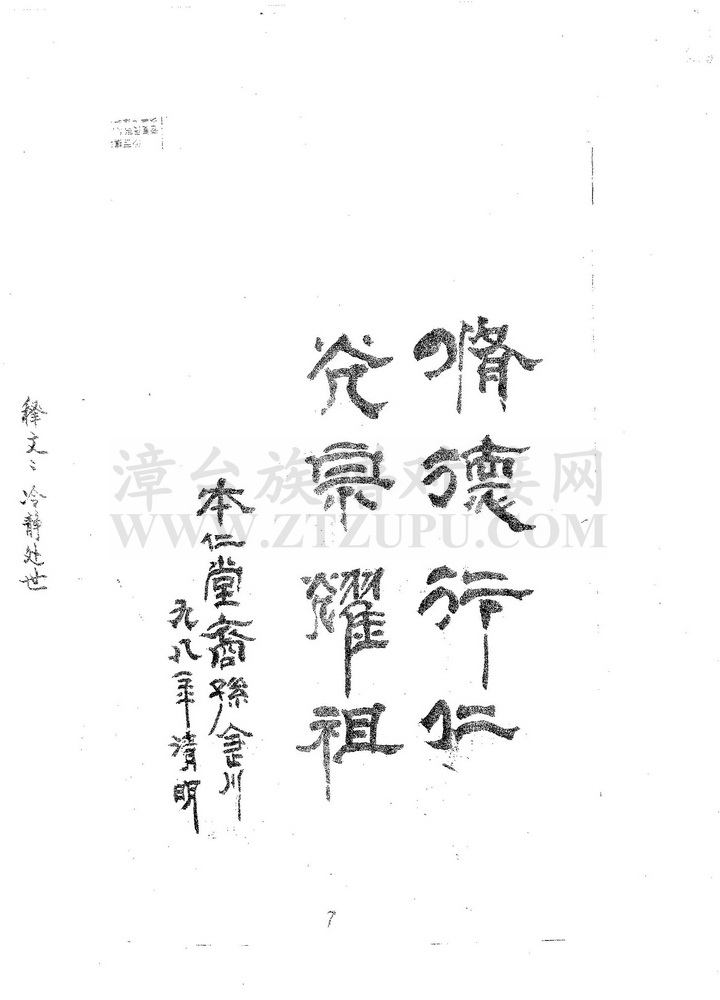 脩德行仁
光宗耀祖
本仁堂裔孫金川
九八年清明
释文：冷静处世
漳台族谱对接网
WWW.ZTZUPU.COM
7